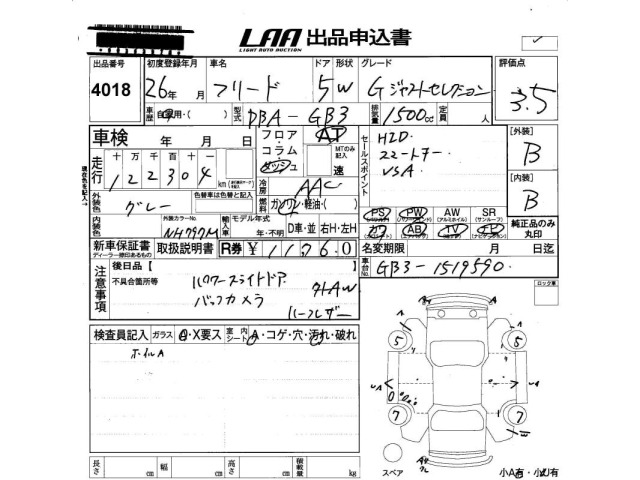 LAA 出品申込書
LIGHT AUTO AUCTION
出品番号 初度登録年月 車名 ドア 形状 グレード 評価点
4018 26年 月 フリード 5W G ジャストセレクション 3.5
車歴 自家用・( ) 型式 DBA-GB3 排気量 1500cc 定員 人
車検 年 月 日 フロア AT セールスポイント HID [外装]
コラム MTのみ記入 B
走行 十 万 千 百 十 ダッシュ 速 VSA [内装]
122304 km 冷房 AAC B
外装色 グレー 色替車は色替と記入 燃料 ガソリン・軽油・( )
内装色 外装カラーNo. NH797M 輸入車 モデル年式 年・不明 D車・並 右H・左H
PS PW AW SR 純正品のみ丸印
カワ AB TV
新車保証書 取扱説明書 R券 ¥11760 名変期限 月 日迄
ディーラー捺印あるもの
注意事項 後日品【 車台No. GB3-1519590
不具合箇所等 ハーフレザー
バックカメラ
ロック車
検査員記入 ガラス A・X要ス 室内シート A・コゲ・穴・汚れ・破れ
ホイルA
5 5
7 7
スペア
長さ cm 幅 cm 高さ cm 積載量 kg
小A有・小U有
現在色を記入